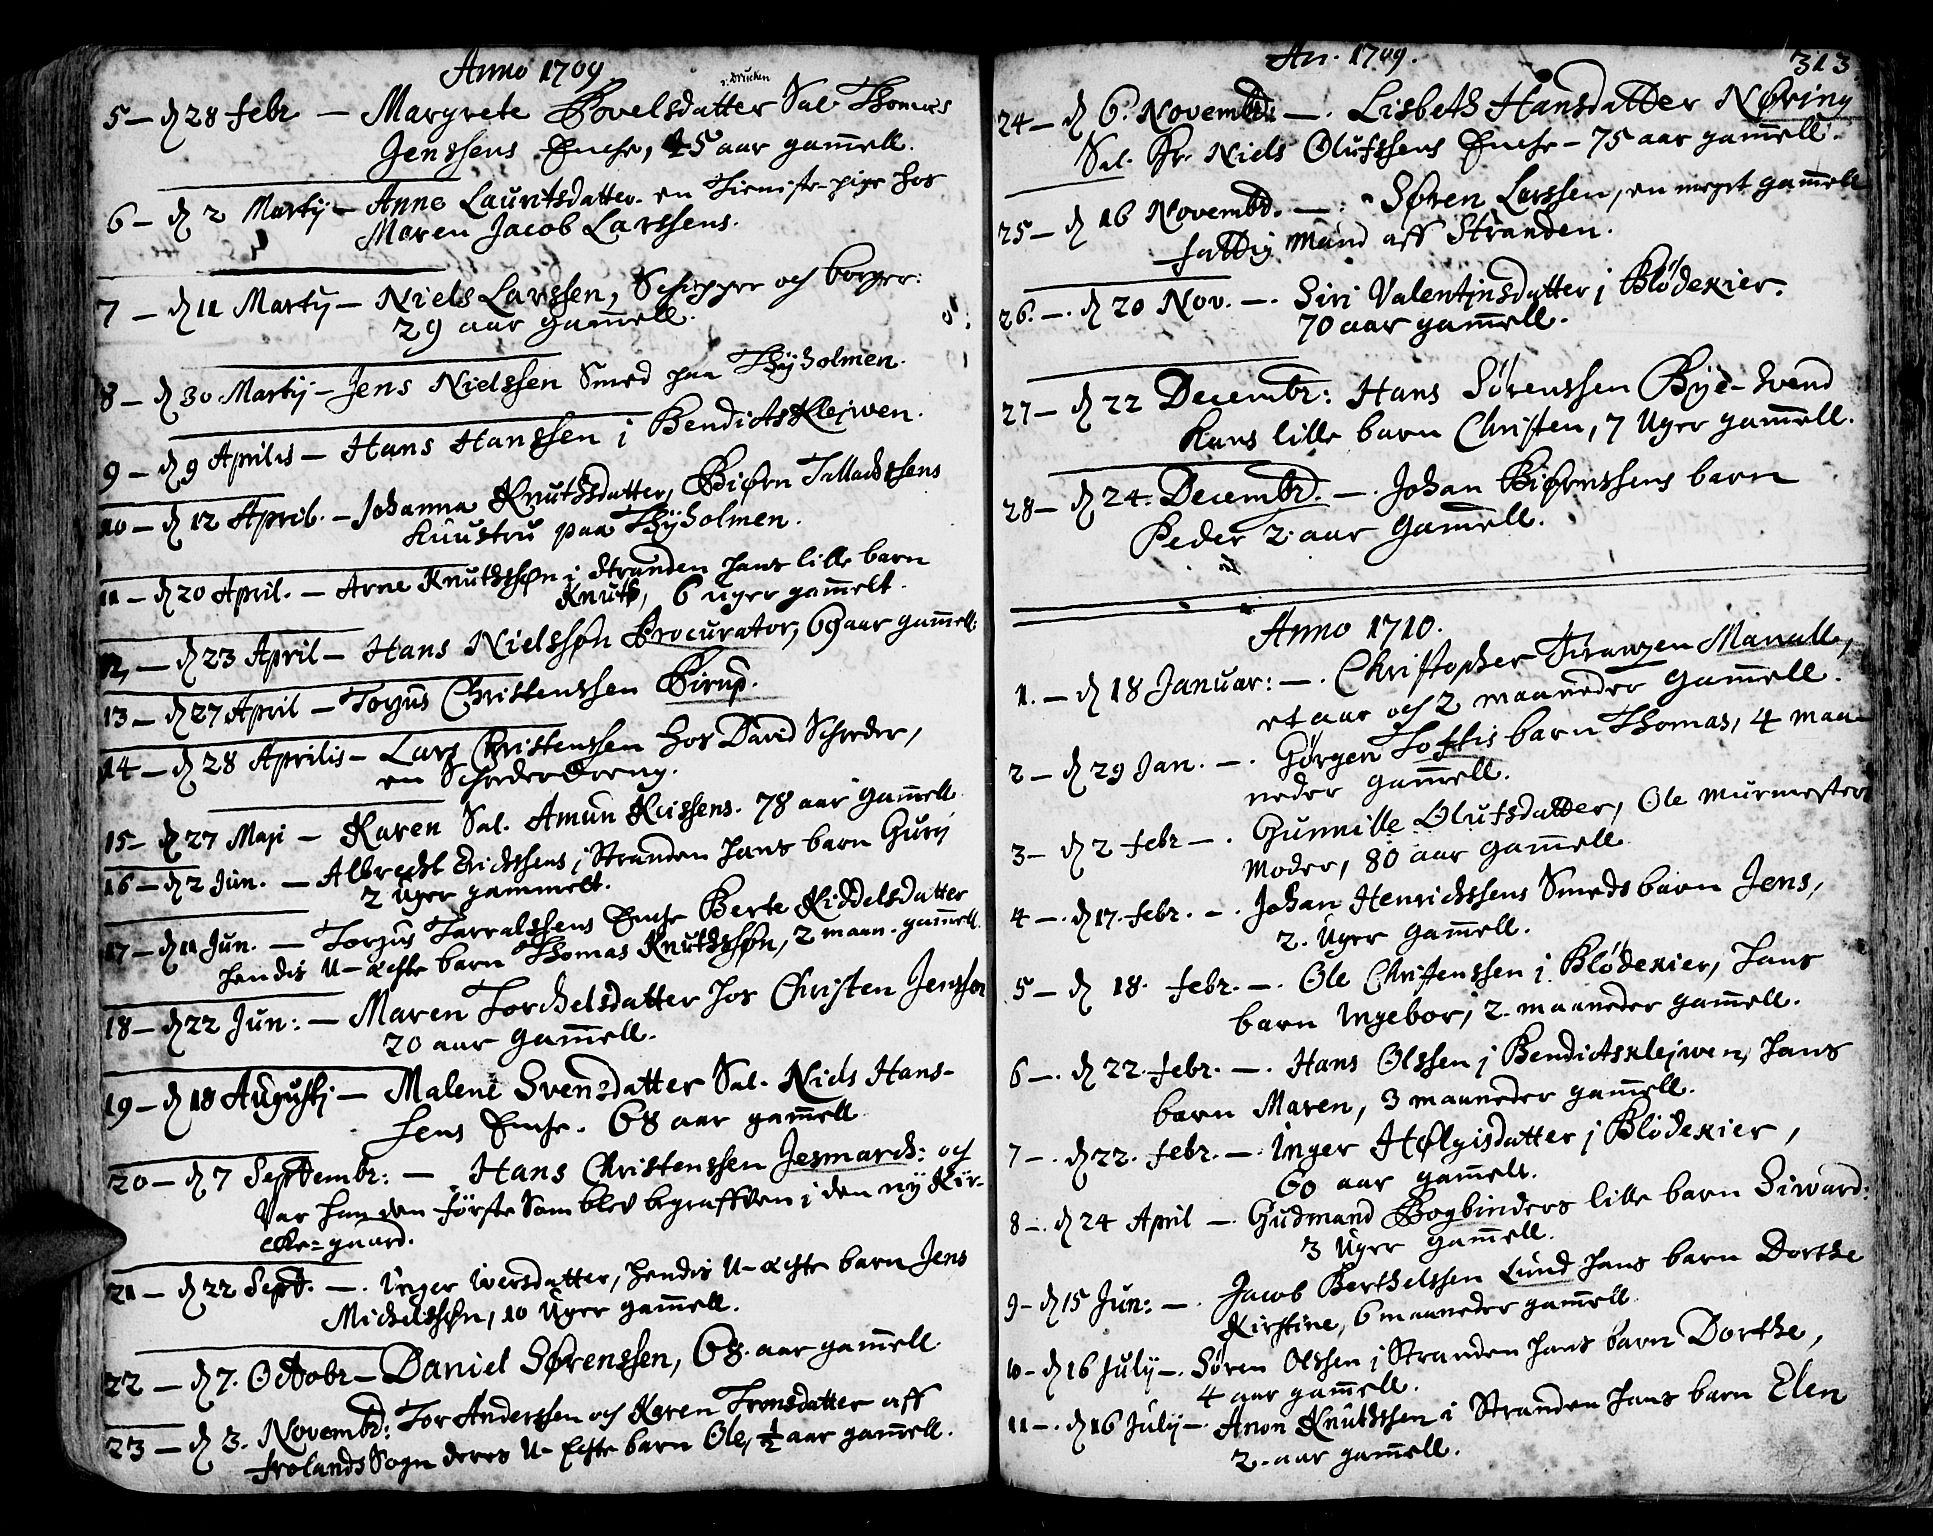 Anno 1709
5 – d 28 febr – Margrete Povelsdatter Sal. Thomæs
Jenssens Enche, 45 aar gam̄ell.
6 – d 2 Martij – Anne Lauritsdatter en Tieniste-pige hos
Maren Jacob Larssens.
7 – d 11 Martij – Niels Larssen, Schipper och borger:
29 aar gam̄ell.
8 – d 30 Martij – Jens Nielssen Smed paa Thÿholmen.
9 – d 9 Aprilis – Hans Hanssen i Bendicts Klejwen.
10 – d 12 April. – Johanna Knuthsdatter, Biørn Tallachssens
huustru paa Thÿholmen.
11 – d 20 April. – Arne Knuthsøn i Stranden hans lille barn
Knuth, 6 uger gam̄elt.
12, – d 23 April – Hans Nielssøn Procurator, 69 aar gam̄ell.
13 – d 27 April – Torjus Christenssen Birup.
14 – d 28 Aprilis – Lars Christenssen hos David Schreder,
en Schreder dreng.
15 – d 27 Maji – Karen Sal. Amun Kiissens. 78 aar gam̄ell
16 – d 2 Jun. – Albrecht Erichssens i Stranden hans barn Gurj
2 Uger gammelt.
17 – d 11 Jun. – Torjus Tarralssens Enche Berte Kiddelsdatter
hendis U-ächte barn Thomas Knuthssøn, 2 maan. gam̄ell.
18 – d 22 Jun: – Maren Torchelsdatter hos Christen Jenssøn
20 aar gam̄ell.
19 – d 18 Augustj – Malene Svensdatter Sal. Niels Hans-
sens Enche. 68 aar gam̄ell
20 – d 7 Septembr: – Hans Christenssen Jesmarch: og
Var han den förste Som blev begraffven i den nÿ Kir-
cke=gaard.
21 – d 22 Sept. – . Inger Iversdatter, hendis U-ächte barn Jens
Michelssøn, 10 Uger gam̄ell.
22 – d 7. Octobr – Daniel Sørenssen, 68 aar gam̄ell
23 – d 3. Novembr: Tor Anderssen och Karen Tronsdatter aff
frolands Sogn deres U-Echte barn Ole, ½ aar gam̄ell.
An. 1709.
313
24 – d 6. Novembr: – . Lisbeth Hansdatter Nøring
Sal. Hr. Niels Olufssens Enche – 75 aar gam̄ell.
25 – d 16 Novembr. – . Søren Larssen, en meget gam̄ell
fattig Mand aff Stranden.
26. – . d 20 Nov. – . Siri Valentinsdatter i Blödekier.
70 aar gam̄ell.
27 – d 22 Decembr: Hans Sørenssen Bÿe-Svend
hans lille barn Christen, 7 Uger gam̄ell.
28 – d 24. Decembr. – . Johan Biørnssens barn
Peder 2 aar gam̄ell.
Anno 1710.
1. – d 18 Januar: – . Christopher Frantzen Manvell,
et aar och 2 maaneder gam̄ell.
2 – d 29 Jan. – . Gørgen Toftis barn Thomas, 4 maa-
neder gam̄ell.
3 – d 2 febr – . Gunnille Olufsdatter, Ole Murmesters
Moder, 80 aar gam̄ell
4 – . d 17. febr. – . Johan Henrichssens Smeds barn Jens,
2. Uger gam̄ell.
5 – d 18. febr. – . Ole Christenssen i Blödekier, hans
barn Ingebor, 2. maaneder gam̄ell.
6 – . d 22. febr. – . Hans Olssen i Bendictsklejwen, hans
barn Maren, 3 maaneder gam̄ell.
7 – . d 22. febr. – . Inger Hølgisdatter i Blödekier,
60 aar gam̄ell.
8 – . d 24 April – . Gudmand Bogbinders lille barn Siward:
3 Uger gam̄ell.
9 – d 15 Jun: – . Jacob Berthelssen Lund hans barn Dorthe
Kirstine, 6 maaneder gam̄ell
10 – d 16 Julÿ – . Søren Olssen i Stranden hans barn Dorthe,
4 aar gam̄ell.
11 – . d 16 Julÿ – . Anon Knuthssen i Stranden hans barn Elen
2. aar gam̄ell.